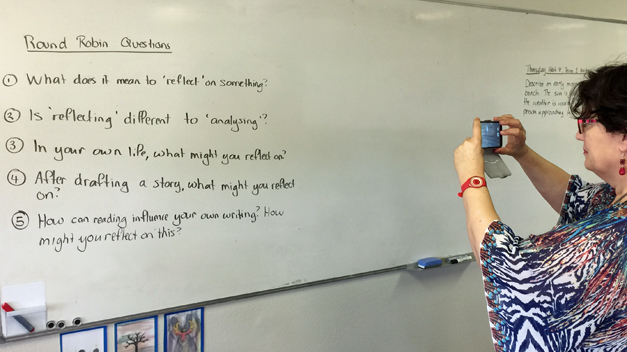 Round Robin Questions
① What does it mean to 'reflect' on something?
② Is 'reflecting' different to 'analysing'?
③ In your own life, what might you reflect on?
④ After drafting a story, what might you reflect
on?
⑤ How can reading influence your own writing? How
might you reflect on this?
Describe an early
beach. The sun is